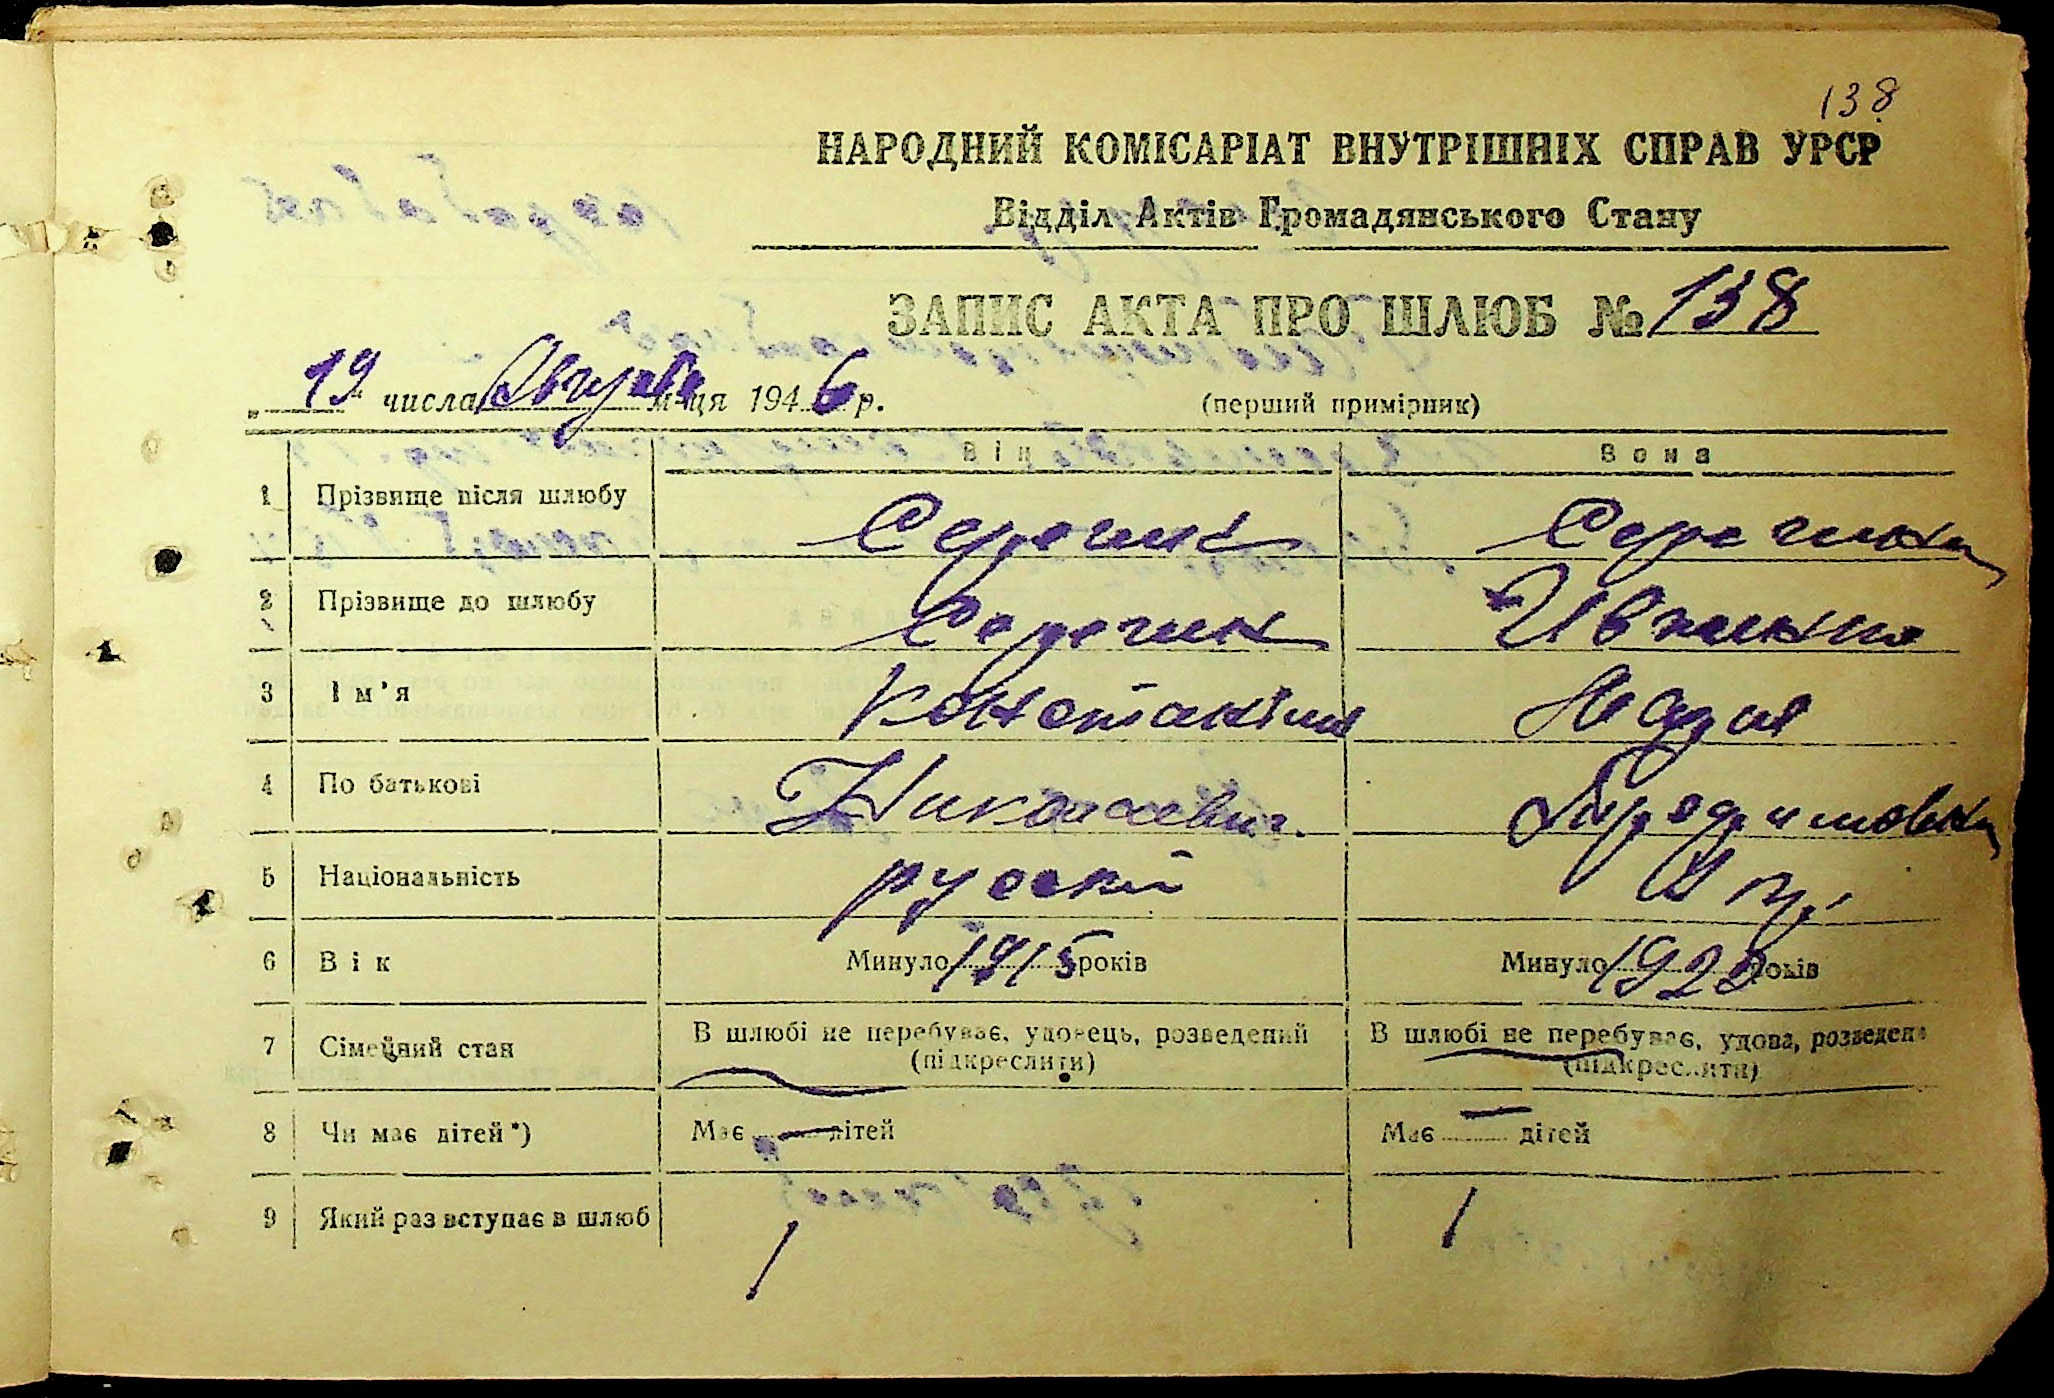 138
НАРОДНИЙ КОМІСАРІАТ ВНУТРІШНІХ СПРАВ УРСР
Відділ Актів Громадянського Стану
ЗАПИС АКТА ПРО ШЛЮБ № 138
„19“ числа Августа м-ця 1946 р. (перший примірник)
Він Вона
1 Прізвище після шлюбу Серегин Серегина
2 Прізвище до шлюбу Серегин
3 Ім'я Константин Надия
4 По батькові Николаевич
5 Національність русский Укр.
6 Вік Минуло 1915 років Минуло 1920 років
7 Сімейний стан В шлюбі не перебуває, удовець, розведений В шлюбі не перебуває, удова, розведена
(підкреслити) (підкреслити)
8 Чи має дітей*) Має — дітей Має — дітей
9 Який раз вступає в шлюб 1 1